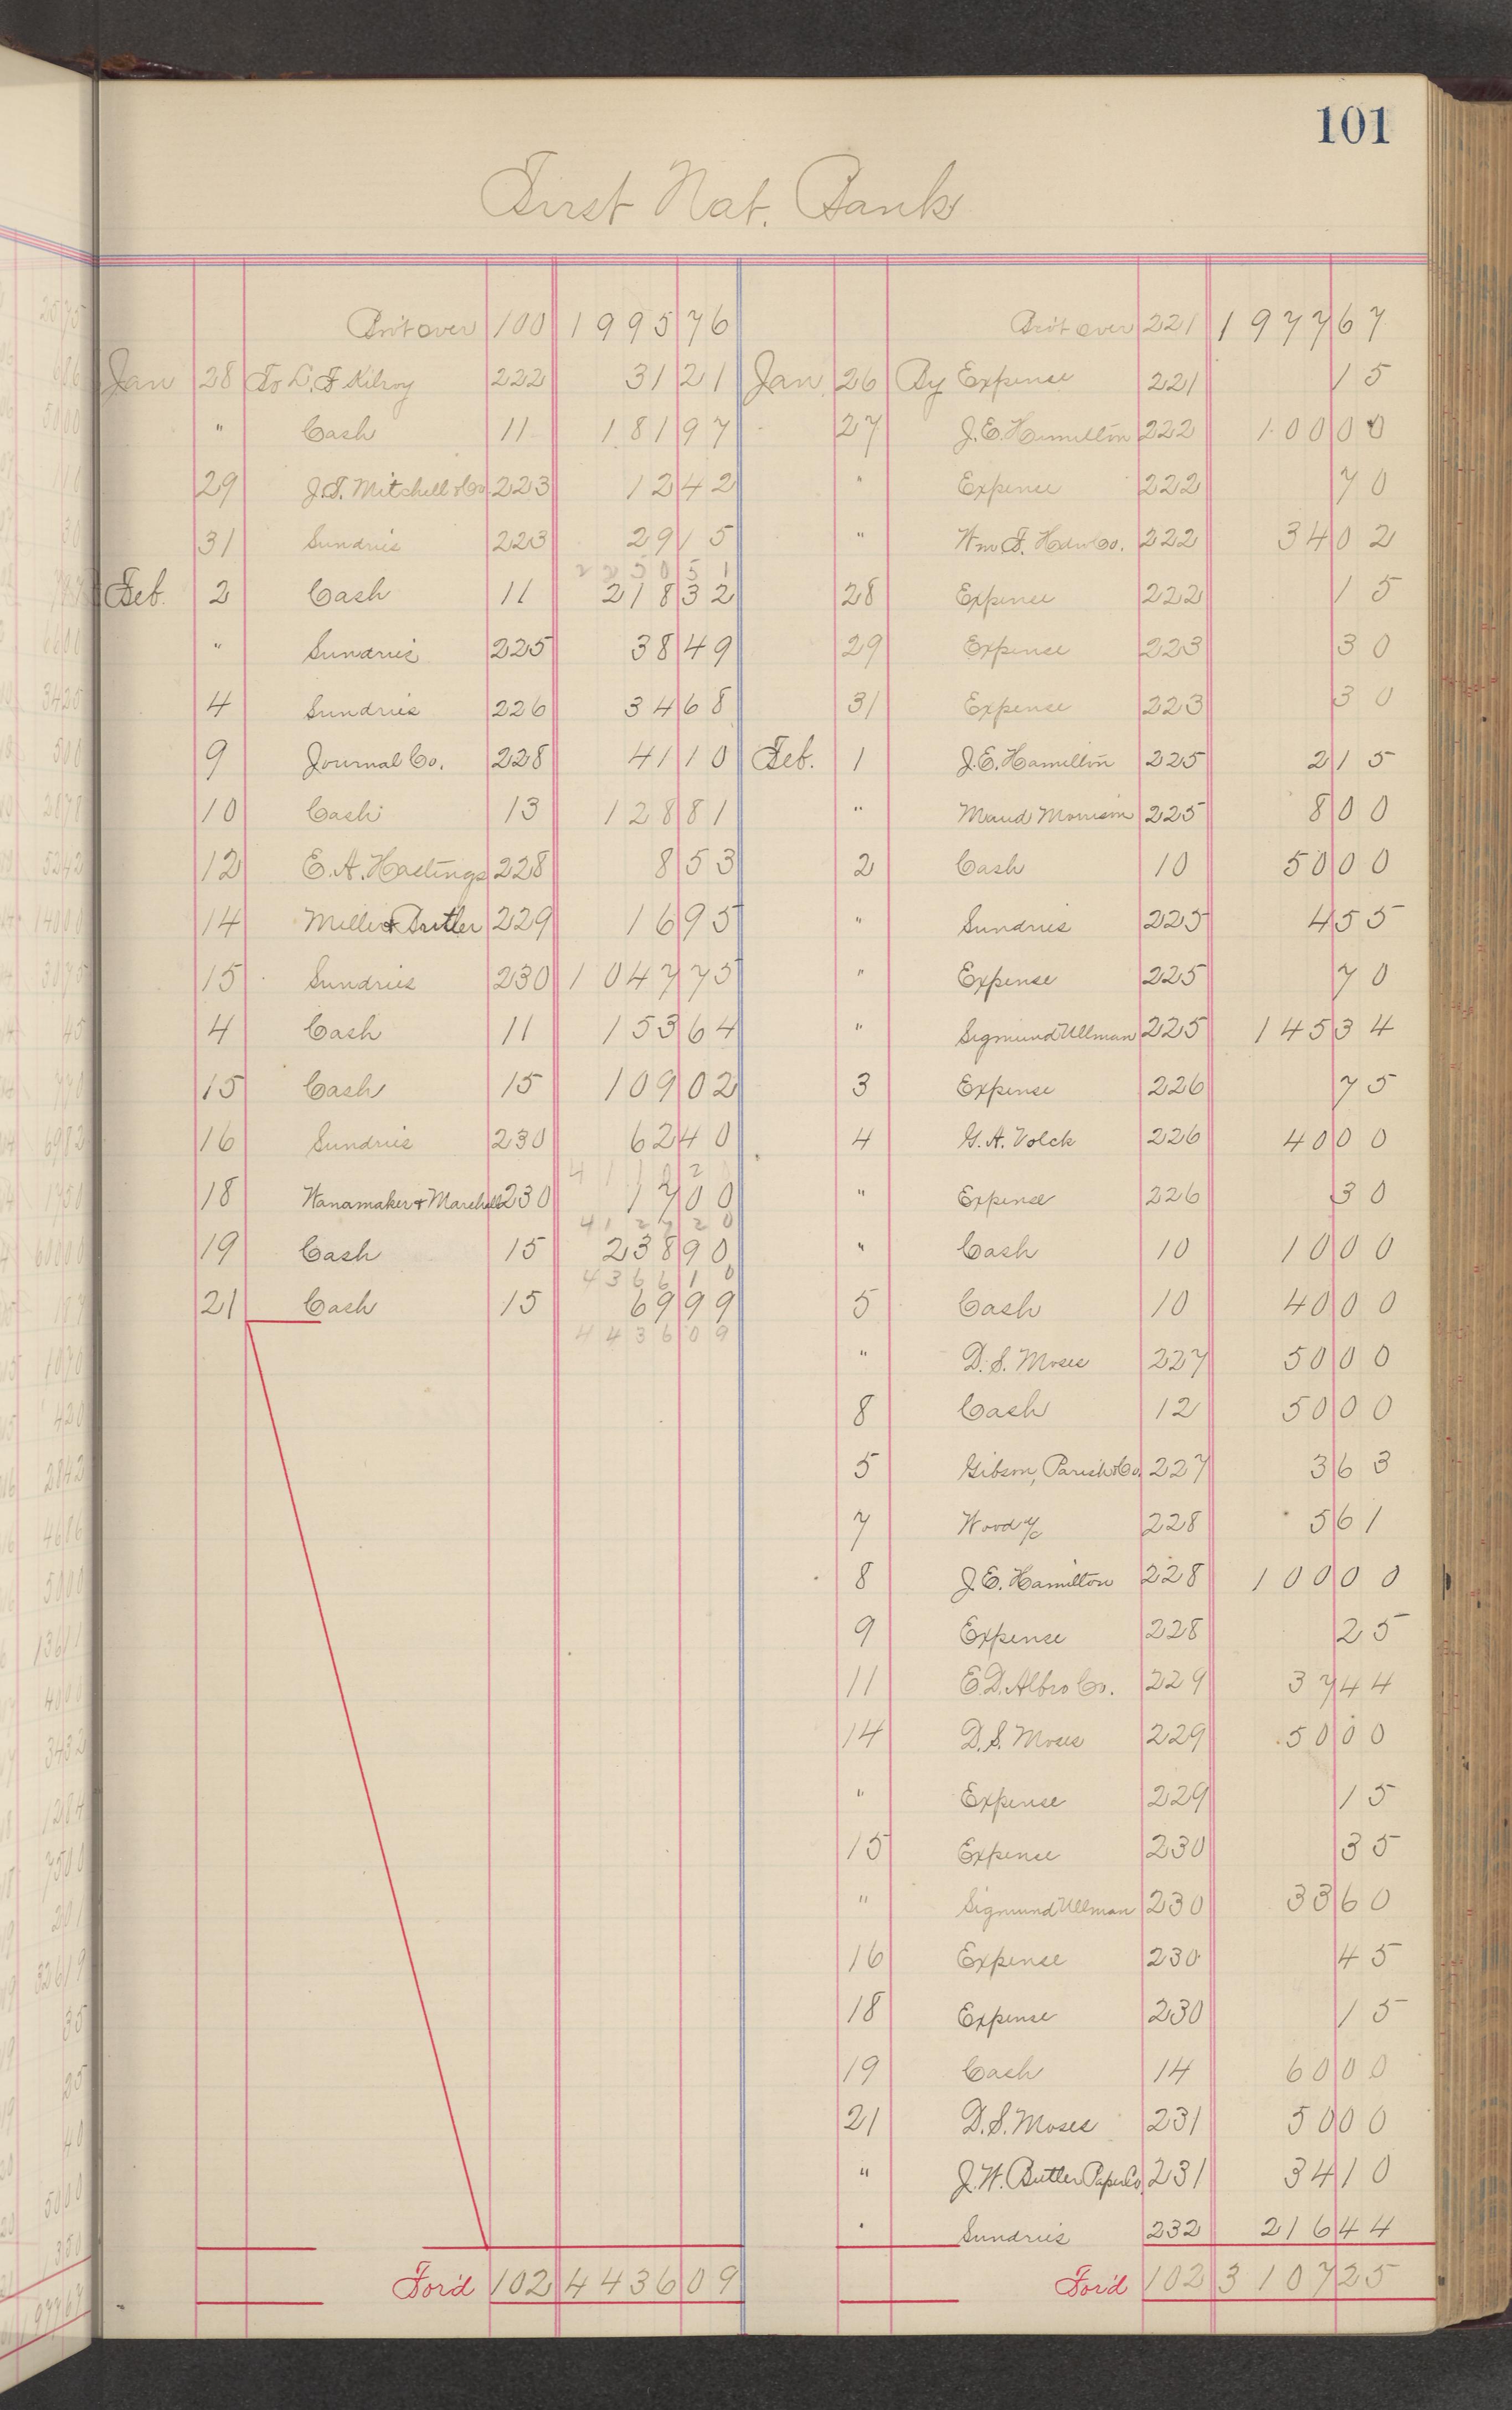 101
First Nat. Bank
Bro't over 100 1995 76
Jan 28 To L. F. Kilroy 222 31 21
" Cash 11 181 97
29 J. S. Mitchell & Co 223 12 42
31 Sundries 223 29 15
2250 51
Feb. 2 Cash 11 218 32
" Sundries 225 38 49
4 Sundries 226 34 68
9 Journal Co. 228 41 10
10 Cash 13 128 81
12 E. A. Hastings 228 8 53
14 Miller & Butler 229 16 95
15 Sundries 230 1047 75
4 Cash 11 153 64
15 Cash 15 109 02
16 Sundries 230 62 40
18 Wanamaker & Marshall 230 17 00
4127 20
19 Cash 15 238 90
4366 10
21 Cash 15 69 99
4436 09
For'd 102 4436 09
Bro't over 221 1977 67
Jan 26 By Expense 221 15
27 J. E. Hamilton 222 100 00
" Expense 222 70
" Wm F. Hdw Co. 222 34 02
28 Expense 222 15
29 Expense 223 30
31 Expense 223 30
Feb. 1 J. E. Hamilton 225 2 15
" Maud Morrison 225 8 00
2 Cash 10 50 00
" Sundries 225 4 55
" Expense 225 70
" Sigmund Ullman 225 145 34
3 Expense 226 75
4 G. A. Volck 226 40 00
" Expense 226 30
" Cash 10 10 00
5 Cash 10 40 00
" D. S. Moses 227 50 00
8 Cash 12 50 00
5 Gibson, Parish & Co. 227 3 63
7 Wood a/c 228 5 61
8 J. E. Hamilton 228 100 00
9 Expense 228 25
11 E. D. Albro Co. 229 37 44
14 D. S. Moses 229 50 00
" Expense 229 15
15 Expense 230 35
" Sigmund Ullman 230 33 60
16 Expense 230 45
18 Expense 230 15
19 Cash 14 60 00
21 D. S. Moses 231 50 00
" J. W. Butler Paper Co. 231 34 10
" Sundries 232 216 44
For'd 102 3107 25